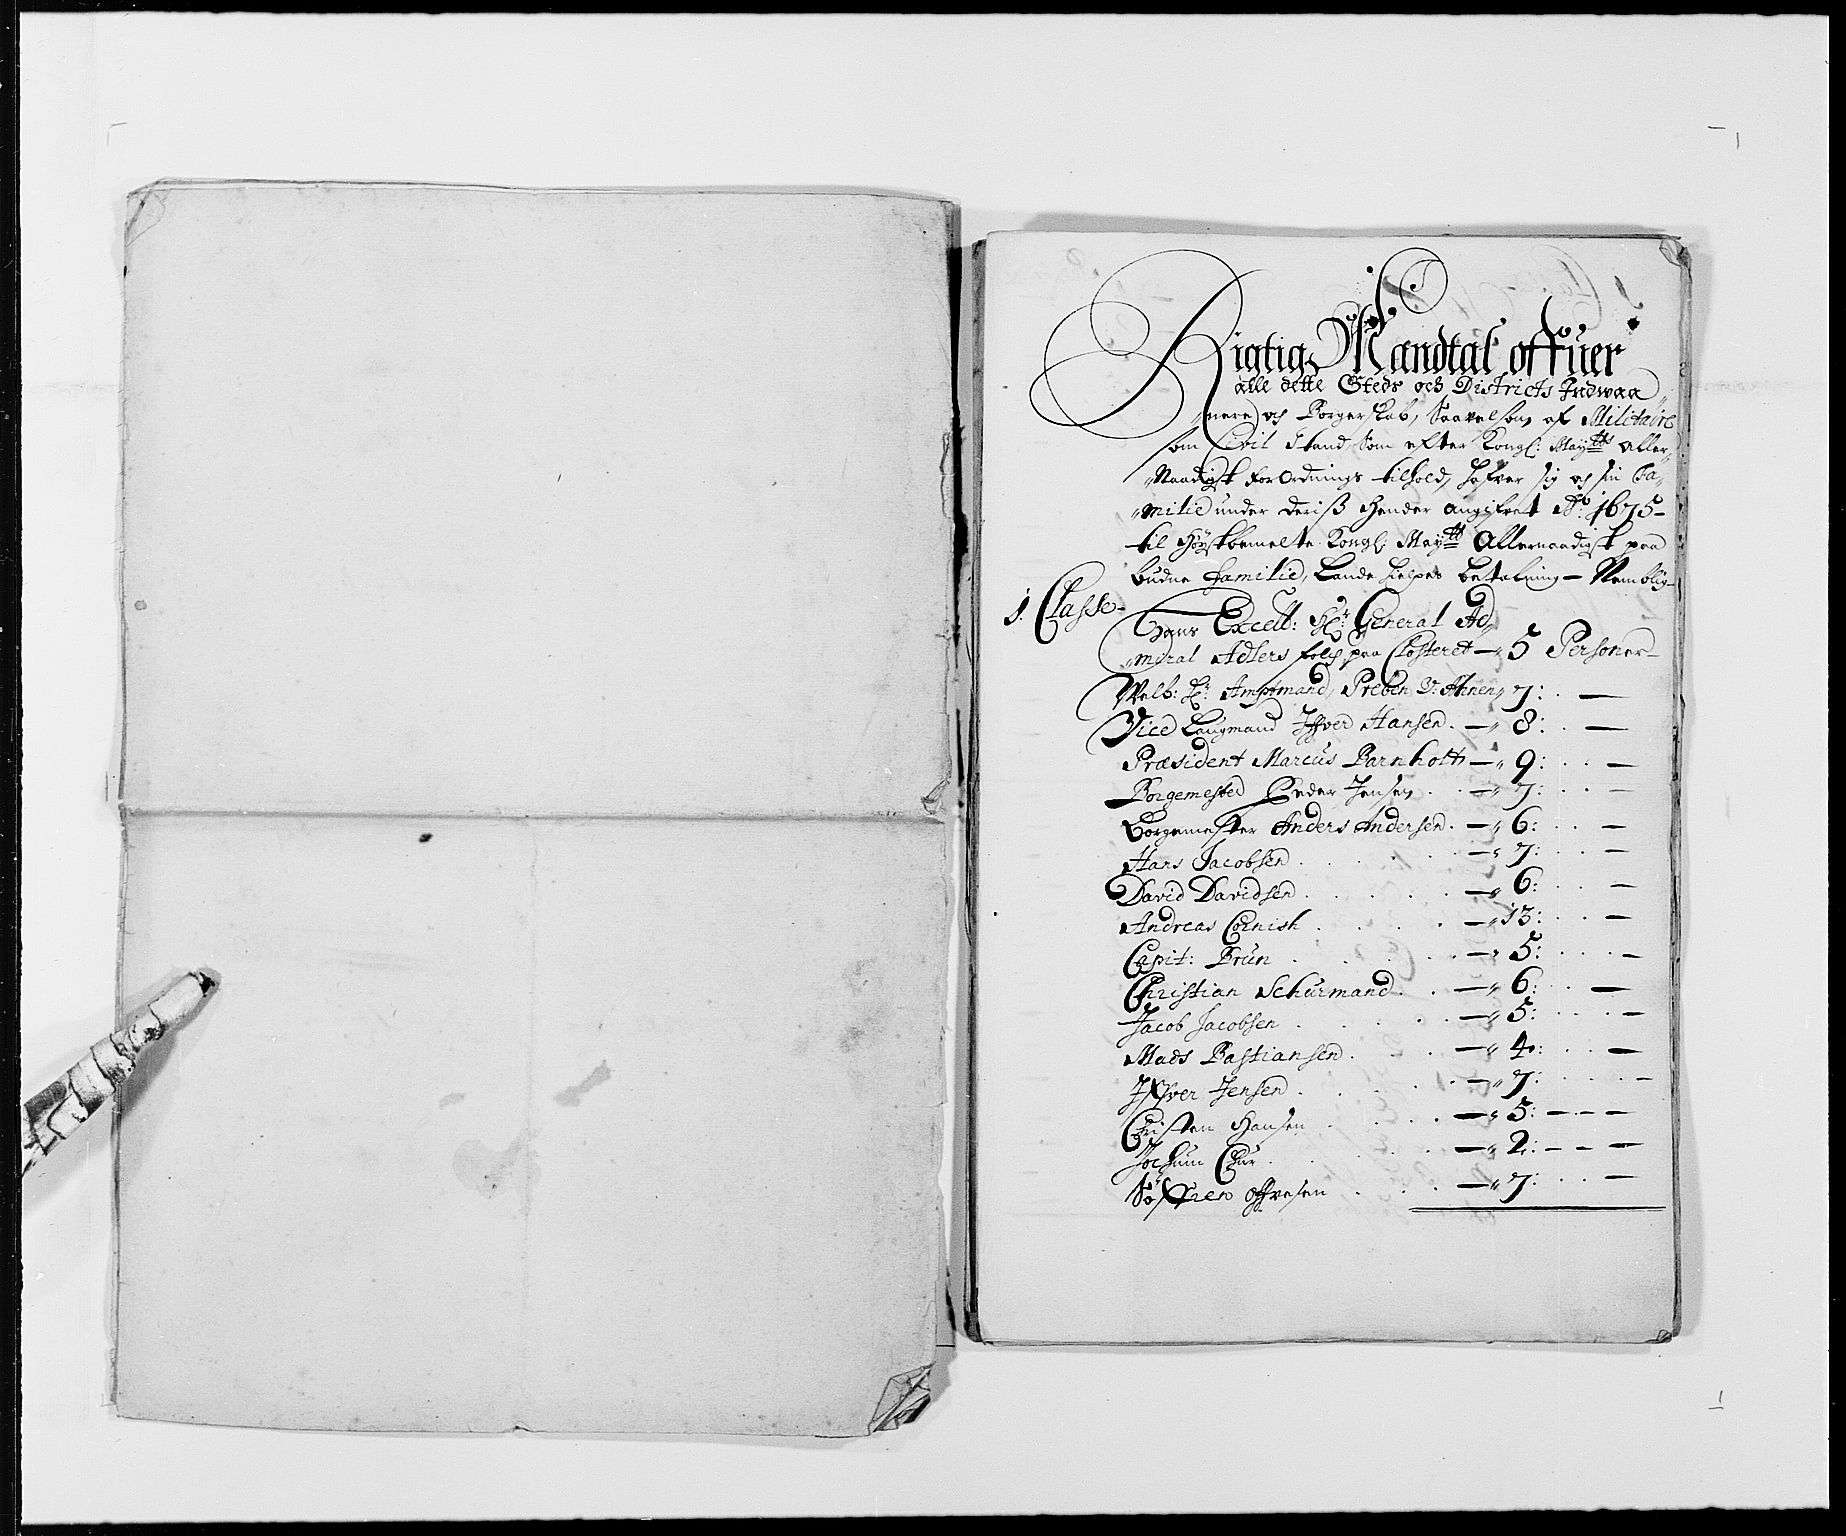 Rigtig Mandtal offuer
alle dette Steds och Districts Indwaa
nere och Borgerskab, Saavelsom af Militaire
som Civil Stand, Som efter Kongl: Mayᵗᵗˢ aller
Naadigst ForOrdnings tilhold, hafver sig och sin Fa
milie under deris Hender angifvet Aº: 1675
til Høystbemelte Kongl: Mayᵗᵗ Allernaadigst paa
budne Familie, Lande hielpes betalning — Nemblig
1. Classe
Hans Excell: Hr: General Ad
miral Adlers folch paa Closteret — 5 Personer
Welb: Hr: Amptmand, Preben V: Ahnen 7: —
Vice Laugmand Iffver Hansen — 8: —
Præsident Marcus Barnholt — 9: —
Borgemester Peder Jensen — 7: —
Borgemester Anders Andersen — 6: —
Hans Jacobsen — 7: —
David Davidsen — 6: —
Andreas Cornish — 13: —
Capit: Brun — 5: —
Christian Schurmand — 6: —
Jacob Jacobsen — 5: —
Mads Bastiansen — 4: —
Iffver Jensen — 7: —
Christen Hansen — 5: — — —
Jochum — 2: — — —
Søffren — 7: —